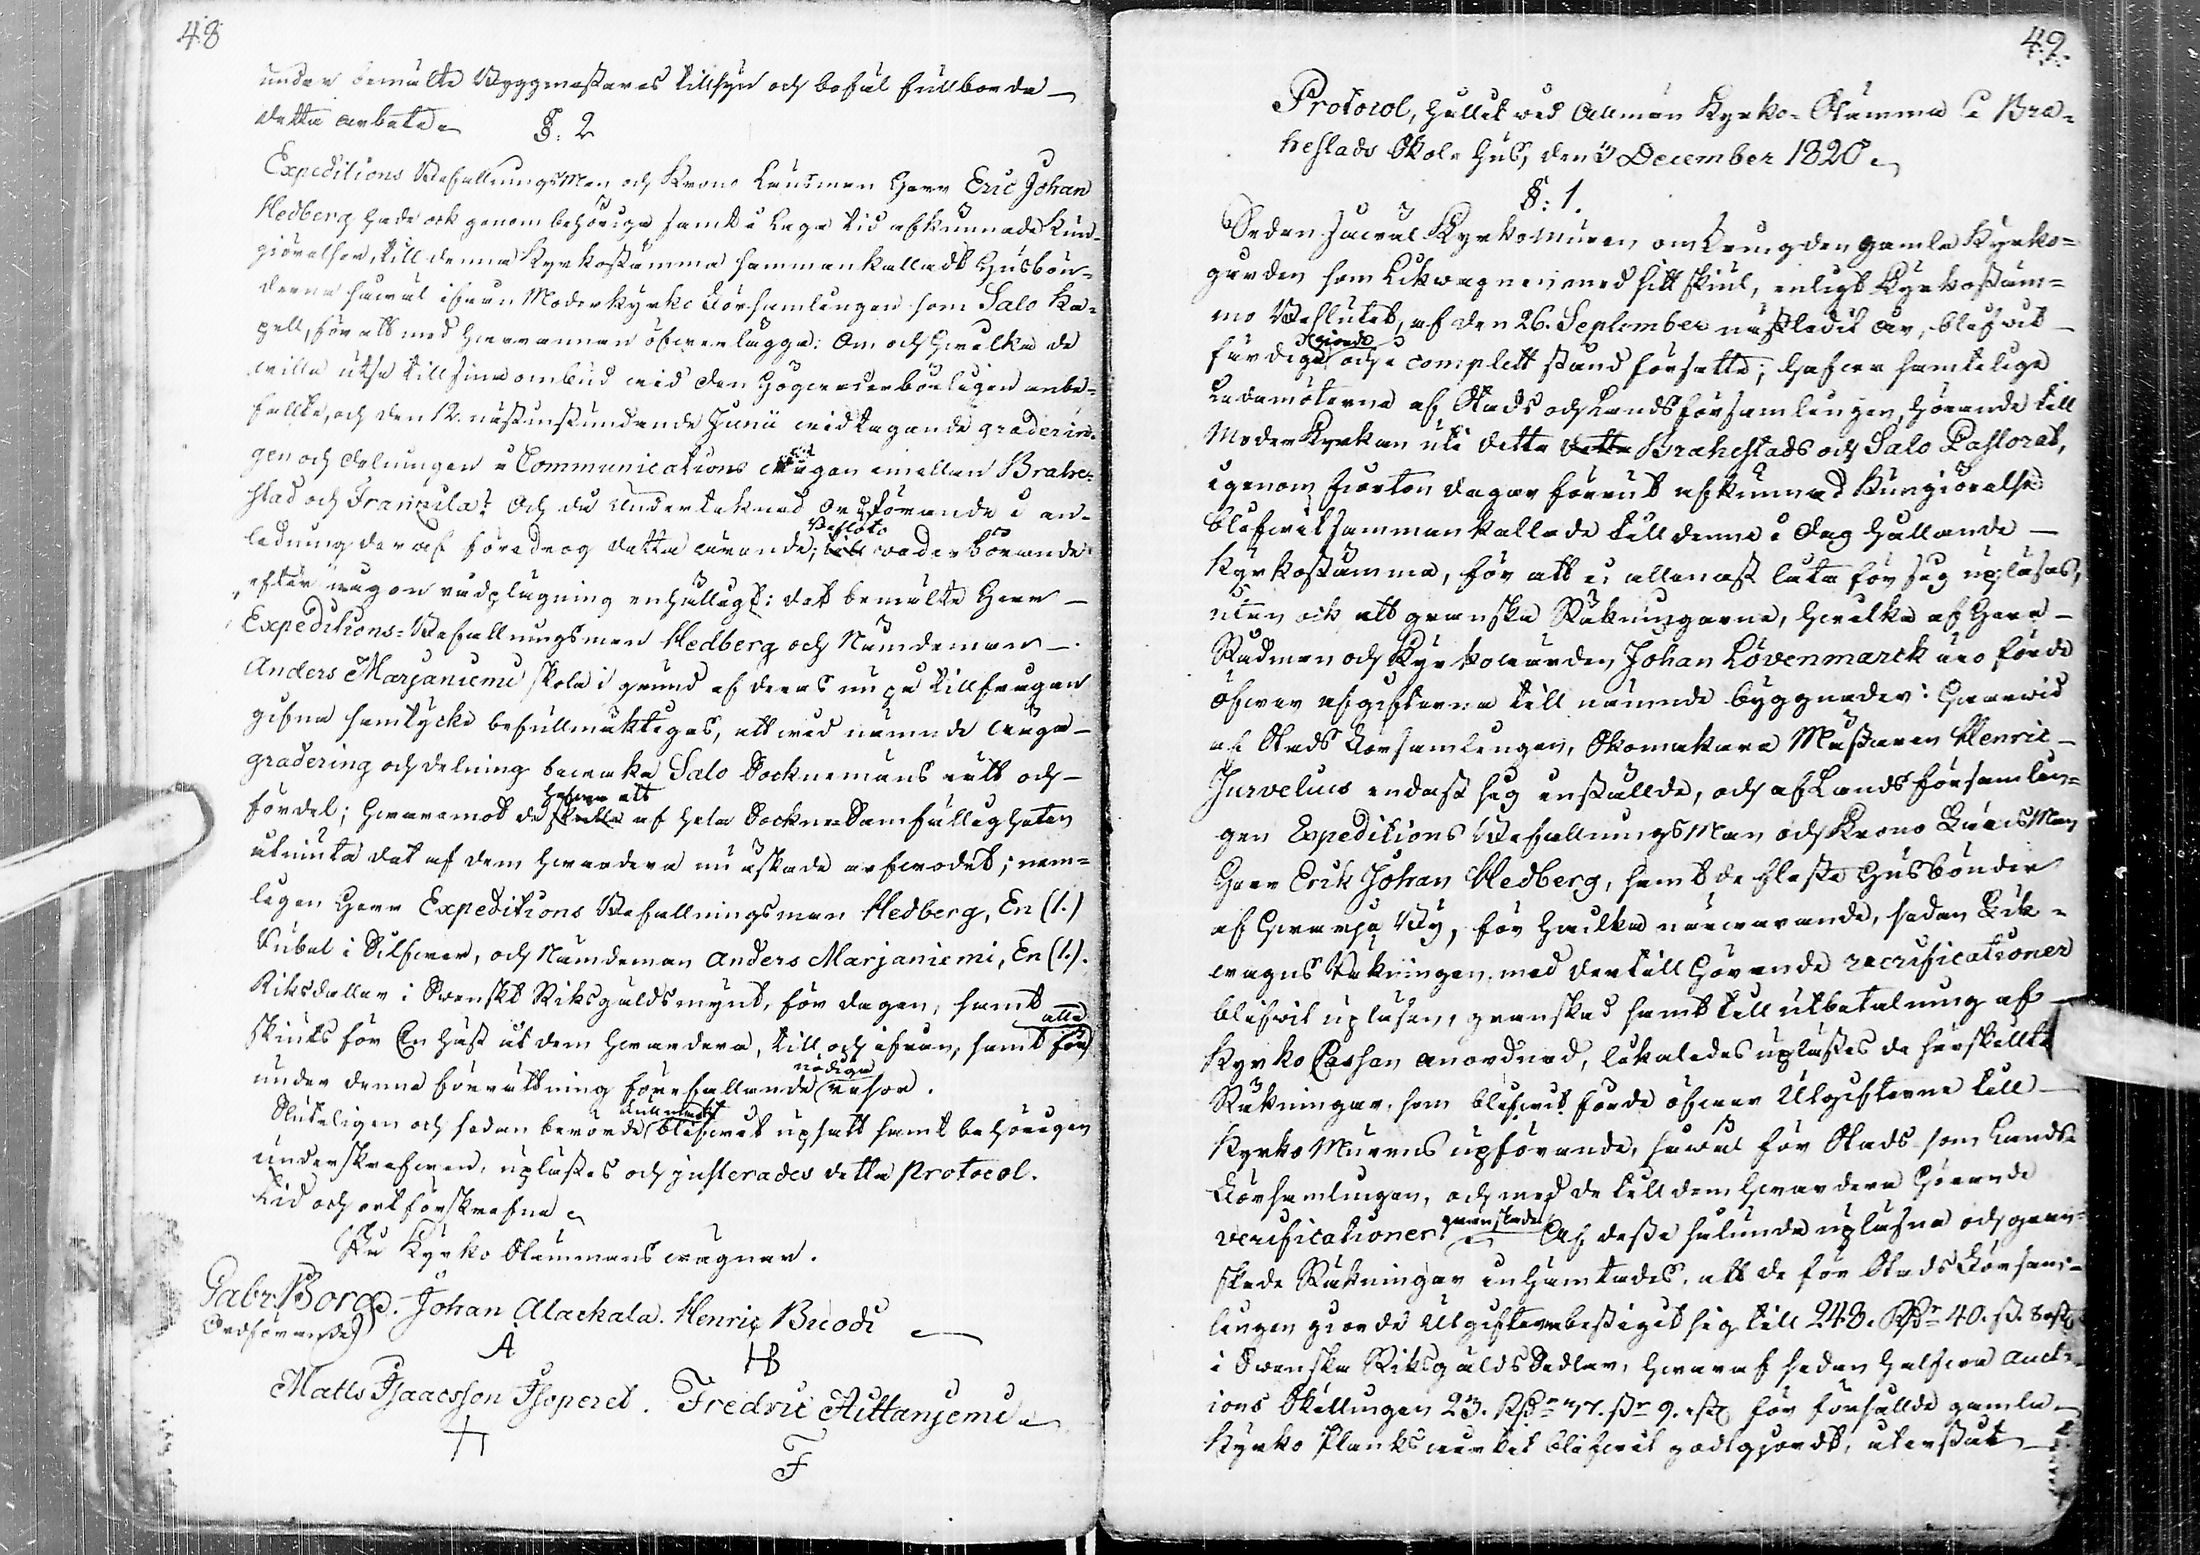 48
under bemälte Byggmästares tillsyn och befäl fullborda
detta arbete.
§. 2
Expeditions BefallningsMan och Krono Länsman Herr Eric Johan
Hedberg hade ock genom behörige samt i laga tid afkunnade Kun-
giörelser, till denna Kyrkostämma sammankalladt Husbön-
derne såwäl ifrån Moderkyrko Församlingen som Salo Ka-
pell, för att med hwarannan öfwerlägga: Om och hwilka de
wille utse till sina ombud wid den Högwederbörligen anbe-
fallte, och den 12. nästinstundande Junii widtagande graderin-
gen och delningen å Communications wägen emellan Brahe-
stad och Frantzila? Och då Undertecknad Ordförande i an-
ledning deraf föredrog detta ärende; Beslöto wederbörande
efter någon rådplägning enhälligt: det bemälte Herr
Expeditions-Befallningsman Hedberg och Nämndeman
Anders Marjaniemi skola i grund af deras nu på tillfrågan
gifna samtycke befullmäktigas, att wid nämnde wäga-
gradering och delning bewaka Salo Socknemäns rätt och
fördel; hwaremot de skulle hafwa att af hela Sockne Samfälligheten
utniuta det af dem hwardera nu äskade arfwodet; nem-
ligen Herr Expeditions Befallningsman Hedberg, En (1.)
Rubel i Silfwer, och Nämndeman Anders Marjaniemi, En (1.).
Riksdaller i Svenskt Riksgäldsmynt, för dagen, samt
skiuts för En häst åt dem hwardera, till och ifrån, samt för alla
under denna förrättning förefallande nödiga resor.
Sluteligen och sedan berörde Fullmakt blifwit upsatt samt behörigen
underskrefwen, uplästes och justerades detta Protocol.
Tid och ort förskrefne.
På Kyrko Stämmans wägnar.
Gabr. Borg. Johan Alaehala. Henric Buodi
Ordförande
A HB
Matts Isaacsson Isoperet. Fredric Aittanjemi
F
49.
Protocol, hållit wid Allmän Kyrko-Stämma i Bra-
hestads Skole Hus, den 3 December 1820.
§: 1.
Sedan såwäl Kyrkomuren omkring den gamla Kyrko-
gården som Likwagnen med sitt skiul, enligt Kyrkostäm-
mo Beslutet, af den 26. September nästledit år, blifwit
färdige giorde och i complett stånd försatte; hafwa samtelige
Ledamöterne af Stads och Lands församlingen, hörande till
Moder Kyrkan uti detta detta Brahestads och Salo Pastorat,
igenom fiorton dagar förrut afkunnad Kungiörelse
blifwit sammankallade till denna i dag hållande
Kyrkostämma, för att ei allenast låta för sig upläsas,
utan ock att granska Räkningarne, hwilka af Herr
Rådman och Kyrkowärden Johan Lövenmarck äro förde
öfwer utgifterna till nämnde byggnader: Hwarwid
af Stads Församlingen, Skomakare Mästaren Henric
Jurvelius endast sig inställde, och af Lands församlin-
gen Expeditions BefallningsMan och Krono LänsMan
Herr Erik Johan Hedberg, samt de flesta Husbönder
af hwarje By, för hwilka närwarande, sedan Lik-
wagns Räkningen med dertill hörande verificationer
blifwit upläsen, granskad samt till utbetalning af
Kyrko Cassan anordnad, likaledes uplästes de särskillte
Räkningar, som blifwit förde öfwer Utgifterne till
Kyrko Murens upförande, såwäl för Stads som Lands
Församlingen, och med de till dem hwardera hörande
verificationer granskades. Af desse sålunda upläsne och gran-
skade Räkningar inhämtades, att de för Stads Församm-
lingen giorde Utgifterne bestigit sig till 248. Rdr 40. sk. 8 rst
i Swenska Riksgälds Sedlar, hwaraf sedan halfwa Auct-
ions Skillingen 23. Rdr 37. sk 9. rst för försållde gamla
Kyrko Planks wirket blifwit godtgjordt, återstått